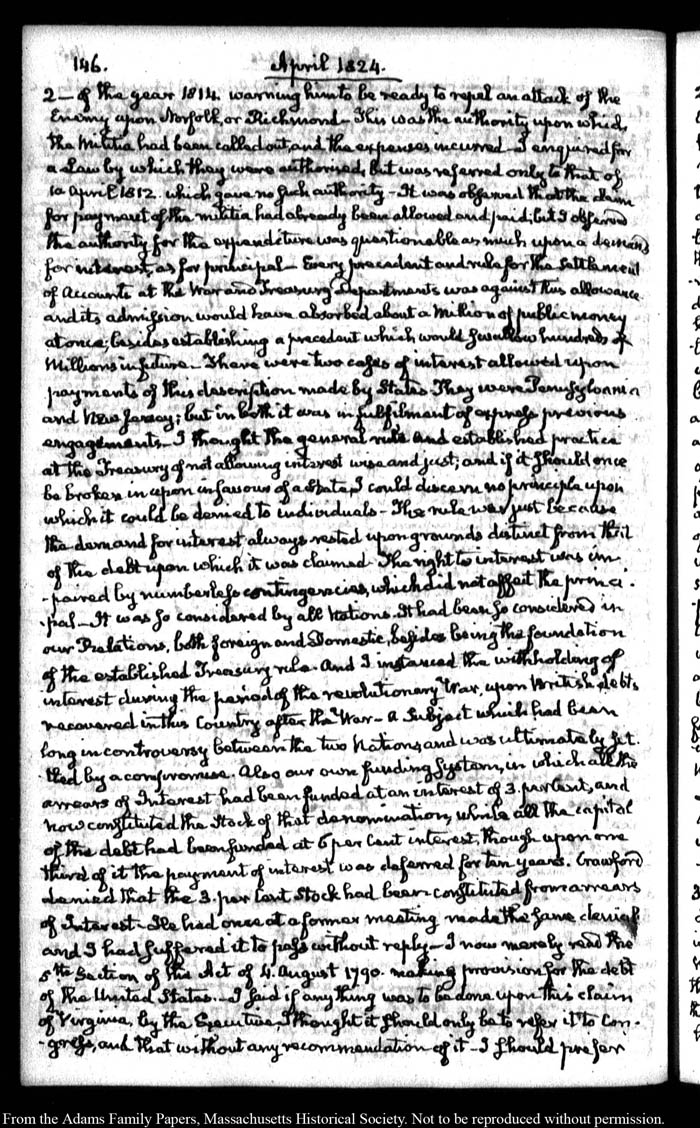 146.
April 1824.
2— of the year 1814. warning him to be ready to repel an attack of the
Enemy upon Norfolk, or Richmond— This was the authority upon which,
the Militia had been called out, and the expenses incurred— I enquired for
a Law by which they were authorised, but was referred only to that of
10 April 1812. which gave no such authority— It was observed that the claim
for payment of the militia had already been allowed and paid; but I observed
the authority for the expenditure was questionable as much upon a demand
for interest, as for principal— Every precedent and rule for the settlement
of Accounts at the War and Treasury Departments was against this allowance
and its admission would have absorbed about a Million of public money
at once; besides establishing a precedent which would swallow hundreds of
Millions in future— There were two cases of interest allowed upon
payments of this description made by States. They were Pennsylvania
and New Jersey; but in both it was in fulfilment of express previous
engagements— I thought the general rule and established practice
at the Treasury of not allowing interest wise and just; and if it should once
be broken in upon in favour of a State, I could discern no principle upon
which it could be denied to individuals— The rule was just because
the demand for interest always rested upon grounds distinct from that
of the debt upon which it was claimed. The right to interest was im-
-paired by numberless contingencies, which did not affect the princi-
-pal— It was so considered by all Nations. It had been so considered in
our Relations, both foreign and Domestic, besides being the foundation
of the established Treasury rule. And I instanced the withholding of
interest during the period of the revolutionary War, upon British debts
recovered in this Country after the War— a subject which had been
long in controversy between the two Nations, and was ultimately set-
-tled by a compromise. Also our own funding System, in which all the
arrears of Interest had been funded at an interest of 3. per Cent, and
now constituted the Stock of that denomination, while all the capital
of the debt had been funded at 6 per Cent interest, though upon one
third of it the payment of interest was deferred for ten years. Crawford
denied that the 3. per Cent Stock had been constituted from arrears
of Interest. He had once at a former meeting made the same denial
and I had suffered it to pass without reply— I now merely read the
5th Section of the Act of 4. August 1790. making provision for the debt
of the United States.— I said if any thing was to be done upon this claim
of Virginia, by the Executive, I thought it should only be to refer it to Con-
-gress, and that without any recommendation of it— I should prefer
From the Adams Family Papers, Massachusetts Historical Society. Not to be reproduced without permission.